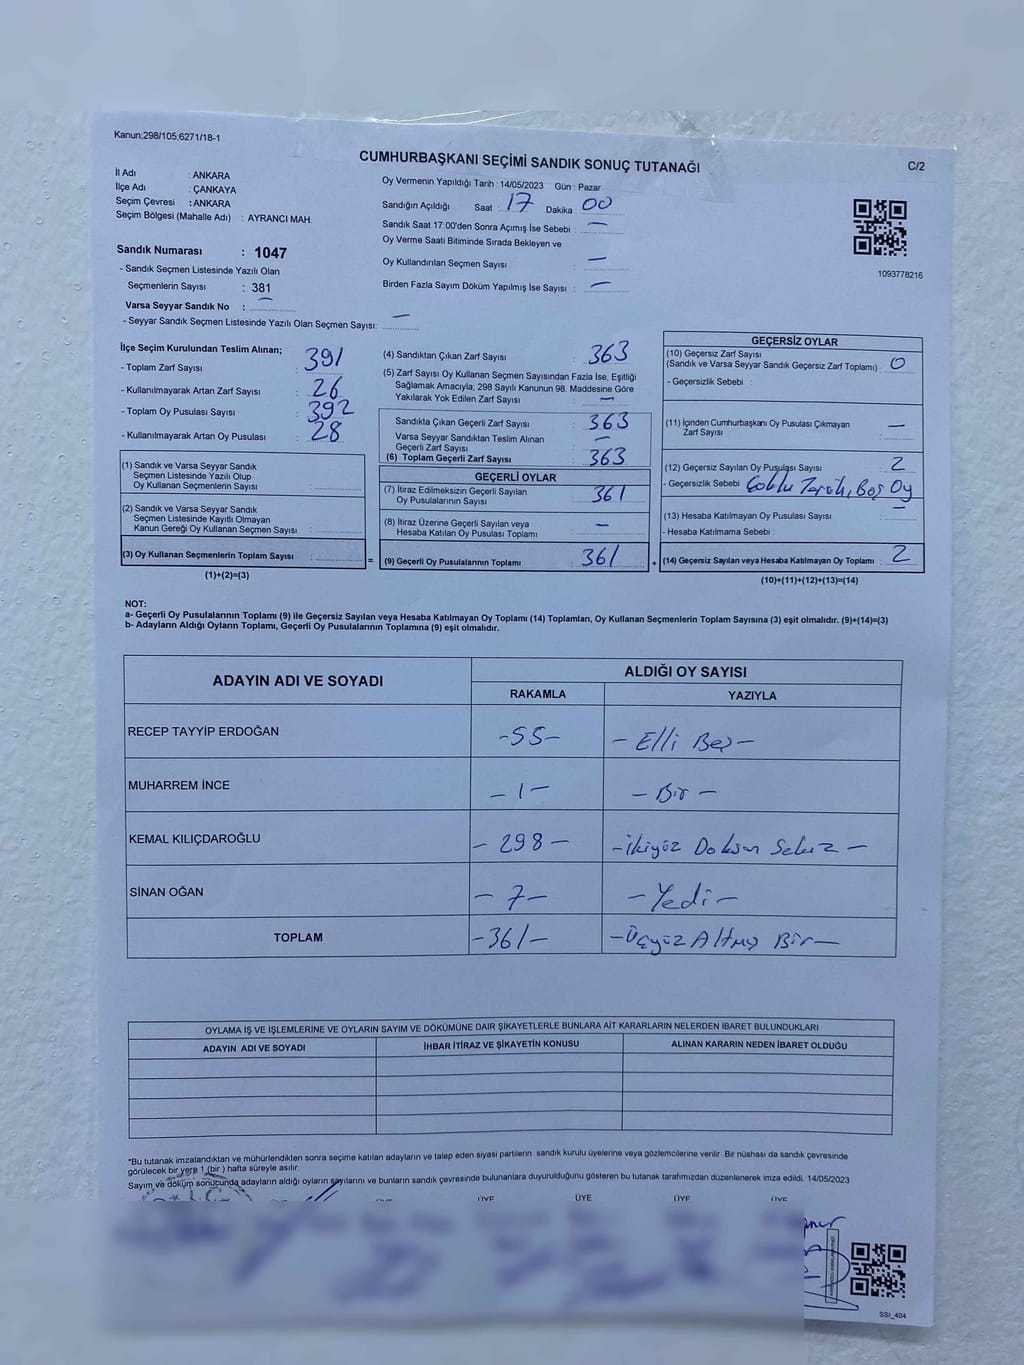 Kanun;298/105;6271/18-1
CUMHURBAŞKANI SEÇİMİ SANDIK SONUÇ TUTANAĞI
C/2
İl Adı : ANKARA
İlçe Adı : ÇANKAYA
Seçim Çevresi : ANKARA
Seçim Bölgesi (Mahalle Adı) : AYRANCI MAH.
Sandık Numarası : 1047
- Sandık Seçmen Listesinde Yazılı Olan
Seçmenlerin Sayısı : 381
Varsa Seyyar Sandık No : —
- Seyyar Sandık Seçmen Listesinde Yazılı Olan Seçmen Sayısı: —
Oy Vermenin Yapıldığı Tarih : 14/05/2023 Gün : Pazar
Sandığın Açıldığı Saat : 17 Dakika : 00
Sandık Saat 17:00'den Sonra Açımış İse Sebebi : —
Oy Verme Saati Bitiminde Sırada Bekleyen ve
Oy Kullandırılan Seçmen Sayısı : —
Birden Fazla Sayım Döküm Yapılmış İse Sayısı : —
1093778216
İlçe Seçim Kurulundan Teslim Alınan;
- Toplam Zarf Sayısı : 391
- Kullanılmayarak Artan Zarf Sayısı : 26
- Toplam Oy Pusulası Sayısı : 392
- Kullanılmayarak Artan Oy Pusulası : 28
(1) Sandık ve Varsa Seyyar Sandık
Seçmen Listesinde Yazılı Olup
Oy Kullanan Seçmenlerin Sayısı :
(2) Sandık ve Varsa Seyyar Sandık
Seçmen Listesinde Kayıtlı Olmayan
Kanun Gereği Oy Kullanan Seçmen Sayısı :
(3) Oy Kullanan Seçmenlerin Toplam Sayısı :
(1)+(2)=(3)
(4) Sandıktan Çıkan Zarf Sayısı : 363
(5) Zarf Sayısı Oy Kullanan Seçmen Sayısından Fazla İse, Eşitliği
Sağlamak Amacıyla; 298 Sayılı Kanunun 98. Maddesine Göre
Yakılarak Yok Edilen Zarf Sayısı : —
Sandıkta Çıkan Geçerli Zarf Sayısı : 363
Varsa Seyyar Sandıktan Teslim Alınan
Geçerli Zarf Sayısı : —
(6) Toplam Geçerli Zarf Sayısı : 363
GEÇERLİ OYLAR
(7) İtiraz Edilmeksizin Geçerli Sayılan
Oy Pusulalarının Sayısı : 361
(8) İtiraz Üzerine Geçerli Sayılan veya
Hesaba Katılan Oy Pusulası Toplamı : —
= (9) Geçerli Oy Pusulalarının Toplamı : 361 +
GEÇERSİZ OYLAR
(10) Geçersiz Zarf Sayısı
(Sandık ve Varsa Seyyar Sandık Geçersiz Zarf Toplamı) : 0
- Geçersizlik Sebebi :
(11) İçinden Cumhurbaşkanı Oy Pusulası Çıkmayan
Zarf Sayısı : —
(12) Geçersiz Sayılan Oy Pusulası Sayısı : 2
- Geçersizlik Sebebi : Boş Oy
(13) Hesaba Katılmayan Oy Pusulası Sayısı : —
- Hesaba Katılmama Sebebi :
(14) Geçersiz Sayılan veya Hesaba Katılmayan Oy Toplamı : 2
(10)+(11)+(12)+(13)=(14)
NOT:
a- Geçerli Oy Pusulalarının Toplamı (9) ile Geçersiz Sayılan veya Hesaba Katılmayan Oy Toplamı (14) Toplamları, Oy Kullanan Seçmenlerin Toplam Sayısına (3) eşit olmalıdır. (9)+(14)=(3)
b- Adayların Aldığı Oyların Toplamı, Geçerli Oy Pusulalarının Toplamına (9) eşit olmalıdır.
ADAYIN ADI VE SOYADI
ALDIĞI OY SAYISI
RAKAMLA YAZIYLA
RECEP TAYYİP ERDOĞAN -55- - Elli Beş -
MUHARREM İNCE - 1 - - Bir -
KEMAL KILIÇDAROĞLU - 298 - - ikiyüz Doksan Sekiz -
SİNAN OĞAN - 7 - - Yedi -
TOPLAM - 361 - - Üçyüz Altmış Bir -
OYLAMA İŞ VE İŞLEMLERİNE VE OYLARIN SAYIM VE DÖKÜMÜNE DAİR ŞİKAYETLERLE BUNLARA AİT KARARLARIN NELERDEN İBARET BULUNDUKLARI
ADAYIN ADI VE SOYADI İHBAR İTİRAZ VE ŞİKAYETİN KONUSU ALINAN KARARIN NEDEN İBARET OLDUĞU
*Bu tutanak imzalandıktan ve mühürlendikten sonra seçime katılan adayların ve talep eden siyasi partilerin sandık kurulu üyelerine veya gözlemcilerine verilir. Bir nüshası da sandık çevresinde
görülecek bir yere 1 (bir ) hafta süreyle asılır.
Sayım ve döküm sonucunda adayların aldığı oyların sayılarını ve bunların sandık çevresinde bulunanlara duyurulduğunu gösteren bu tutanak tarafımızdan düzenlenerek imza edildi. 14/05/2023
ÜYE ÜYE ÜYE ÜYE
SSI_404